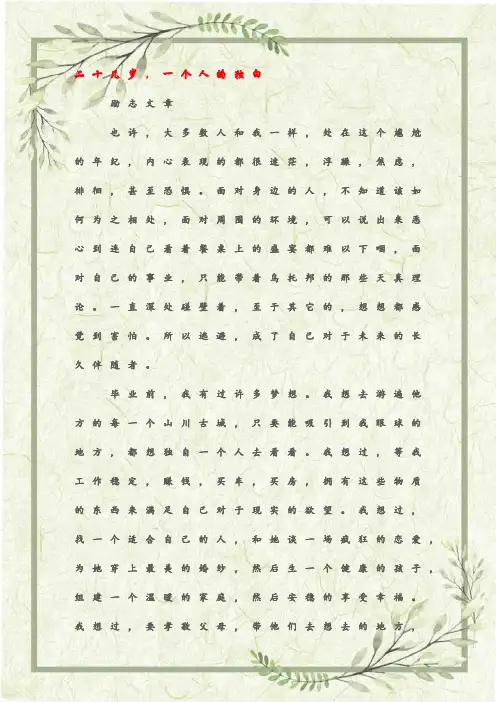 二十几岁，一个人的独白
励志文章
也许，大多数人和我一样，处在这个尴尬
的年纪，内心表现的都很迷茫，浮躁，焦虑，
徘徊，甚至恐惧。面对身边的人，不知道该如
何为之相处，面对周围的环境，可以说出来恶
心到连自己看着餐桌上的盛宴都难以下咽，面
对自己的事业，只能带着乌托邦的那些天真理
论。一直深处碰壁着，至于其它的，想想都感
觉到害怕。所以逃避，成了自己对于未来的长
久伴随者。
毕业前，我有过许多梦想。我想去游遍他
方的每一个山川古城，只要能吸引到我眼球的
地方，都想独自一个人去看看。我想过，等我
工作稳定，赚钱，买车，买房，拥有这些物质
的东西来满足自己对于现实的欲望。我想过，
找一个适合自己的人，和她谈一场疯狂的恋爱，
为她穿上最美的婚纱，然后生一个健康的孩子，
组建一个温暖的家庭，然后安稳的享受幸福。
我想过，要孝敬父母，带他们去想去的地方，